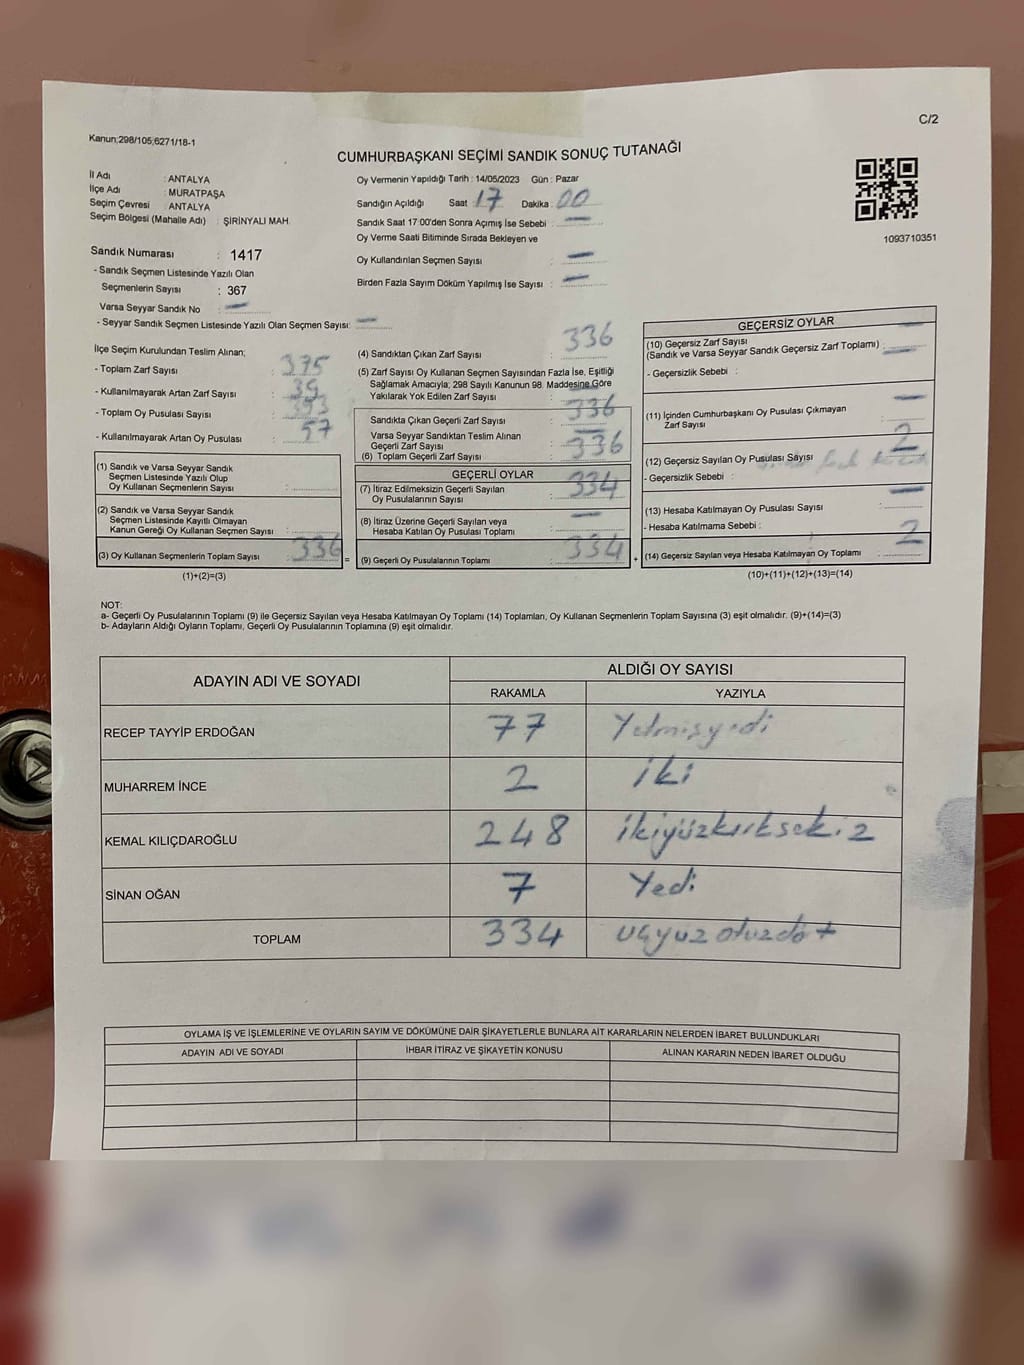 C/2
Kanun;298/105;6271/18-1
CUMHURBAŞKANI SEÇİMİ SANDIK SONUÇ TUTANAĞI
İl Adı : ANTALYA
İlçe Adı : MURATPAŞA
Seçim Çevresi : ANTALYA
Seçim Bölgesi (Mahalle Adı) : ŞİRİNYALI MAH.
Oy Vermenin Yapıldığı Tarih : 14/05/2023 Gün : Pazar
Sandığın Açıldığı Saat : 17 Dakika : 00
Sandık Saat 17:00'den Sonra Açımış İse Sebebi : —
Oy Verme Saati Bitiminde Sırada Bekleyen ve
Oy Kullandırılan Seçmen Sayısı : —
Birden Fazla Sayım Döküm Yapılmış İse Sayısı : —
1093710351
Sandık Numarası : 1417
- Sandık Seçmen Listesinde Yazılı Olan
Seçmenlerin Sayısı : 367
Varsa Seyyar Sandık No : —
- Seyyar Sandık Seçmen Listesinde Yazılı Olan Seçmen Sayısı: —
İlçe Seçim Kurulundan Teslim Alınan;
- Toplam Zarf Sayısı : 375
- Kullanılmayarak Artan Zarf Sayısı : 39
- Toplam Oy Pusulası Sayısı : 393
- Kullanılmayarak Artan Oy Pusulası : 57
(1) Sandık ve Varsa Seyyar Sandık
Seçmen Listesinde Yazılı Olup
Oy Kullanan Seçmenlerin Sayısı :
(2) Sandık ve Varsa Seyyar Sandık
Seçmen Listesinde Kayıtlı Olmayan
Kanun Gereği Oy Kullanan Seçmen Sayısı :
(3) Oy Kullanan Seçmenlerin Toplam Sayısı : 336 =
(1)+(2)=(3)
(4) Sandıktan Çıkan Zarf Sayısı : 336
(5) Zarf Sayısı Oy Kullanan Seçmen Sayısından Fazla İse, Eşitliği
Sağlamak Amacıyla; 298 Sayılı Kanunun 98. Maddesine Göre
Yakılarak Yok Edilen Zarf Sayısı : —
Sandıkta Çıkan Geçerli Zarf Sayısı : 336
Varsa Seyyar Sandıktan Teslim Alınan
Geçerli Zarf Sayısı : —
(6) Toplam Geçerli Zarf Sayısı : 336
GEÇERLİ OYLAR
(7) İtiraz Edilmeksizin Geçerli Sayılan
Oy Pusulalarının Sayısı : 334
(8) İtiraz Üzerine Geçerli Sayılan veya
Hesaba Katılan Oy Pusulası Toplamı : —
(9) Geçerli Oy Pusulalarının Toplamı : 334 +
GEÇERSİZ OYLAR
(10) Geçersiz Zarf Sayısı
(Sandık ve Varsa Seyyar Sandık Geçersiz Zarf Toplamı) : —
- Geçersizlik Sebebi :
(11) İçinden Cumhurbaşkanı Oy Pusulası Çıkmayan
Zarf Sayısı : —
(12) Geçersiz Sayılan Oy Pusulası Sayısı : 2
- Geçersizlik Sebebi :
(13) Hesaba Katılmayan Oy Pusulası Sayısı : —
- Hesaba Katılmama Sebebi :
(14) Geçersiz Sayılan veya Hesaba Katılmayan Oy Toplamı : 2
(10)+(11)+(12)+(13)=(14)
NOT:
a- Geçerli Oy Pusulalarının Toplamı (9) ile Geçersiz Sayılan veya Hesaba Katılmayan Oy Toplamı (14) Toplamları, Oy Kullanan Seçmenlerin Toplam Sayısına (3) eşit olmalıdır. (9)+(14)=(3)
b- Adayların Aldığı Oyların Toplamı, Geçerli Oy Pusulalarının Toplamına (9) eşit olmalıdır.
ADAYIN ADI VE SOYADI ALDIĞI OY SAYISI
RAKAMLA YAZIYLA
RECEP TAYYİP ERDOĞAN 77 Yetmişyedi
MUHARREM İNCE 2 iki
KEMAL KILIÇDAROĞLU 248 ikiyüzkırksekiz
SİNAN OĞAN 7 Yedi
TOPLAM 334 üçyüz otuzdört
OYLAMA İŞ VE İŞLEMLERİNE VE OYLARIN SAYIM VE DÖKÜMÜNE DAİR ŞİKAYETLERLE BUNLARA AİT KARARLARIN NELERDEN İBARET BULUNDUKLARI
ADAYIN ADI VE SOYADI İHBAR İTİRAZ VE ŞİKAYETİN KONUSU ALINAN KARARIN NEDEN İBARET OLDUĞU